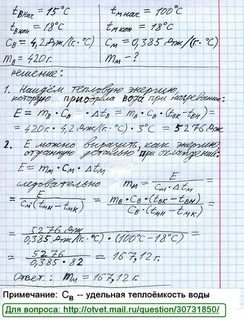 t в нач = 15°C t м нач = 100°C
t в кон = 18°C t м кон = 18°C
C в = 4,2 Дж/(г·°C) C м = 0,385 Дж/(г·°C)
m в = 420 г. m м - ?
Решение:
1. Найдём тепловую энергию,
которую приобрела вода при нагревании:
E = m в · C в · Δt в = m в · C в · (t вк - t вн) =
= 420 г · 4,2 Дж/(г·°C) · 3°C = 5276 Дж
2. E можно выразить, как энергию,
отданную деталью при охлаждении:
E = m м · C м · Δt м
следовательно m м = E / (C м · Δt м) =
= E / (C м (t мн - t мк)) = m в · C в · (t вк - t вн) / (C м · (t мн - t мк)) =
= 5276 Дж / (0,385 Дж/(г·°C) · (100°C - 18°C)) =
= 5276 / (0,385 · 82) = 167,12 г.
Ответ: m м = 167,12 г.
Примечание: C в -- удельная теплоёмкость воды
Для вопроса: http://otvet.mail.ru/question/30731850/